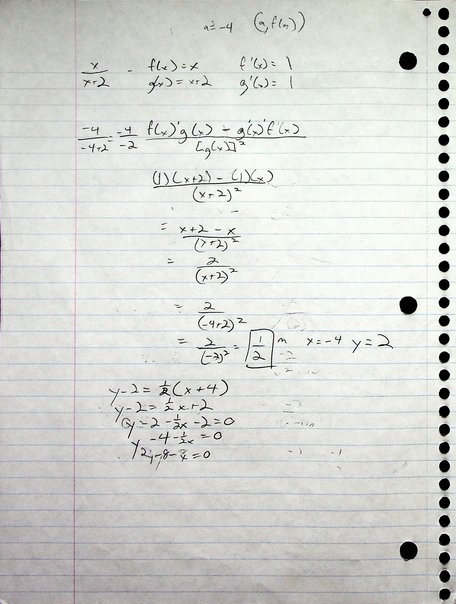 a = -4 (a, f(a))
x/(x+2) - f(x) = x f'(x) = 1
g(x) = x+2 g'(x) = 1
-4/(-4+2) = -4/-2 (f(x)'g(x) - g(x)'f(x))/[g(x)]²
((1)(x+2) - (1)(x))/(x+2)²
= (x+2-x)/(x+2)²
= 2/(x+2)²
= 2/(-4+2)²
= 2/(-2)² = 1/2 m x=-4 y=2
y-2 = 1/2(x+4)
y-2 = 1/2x+2
y-2-1/2x-2=0
y-4-1/2x=0
2y-8-x=0